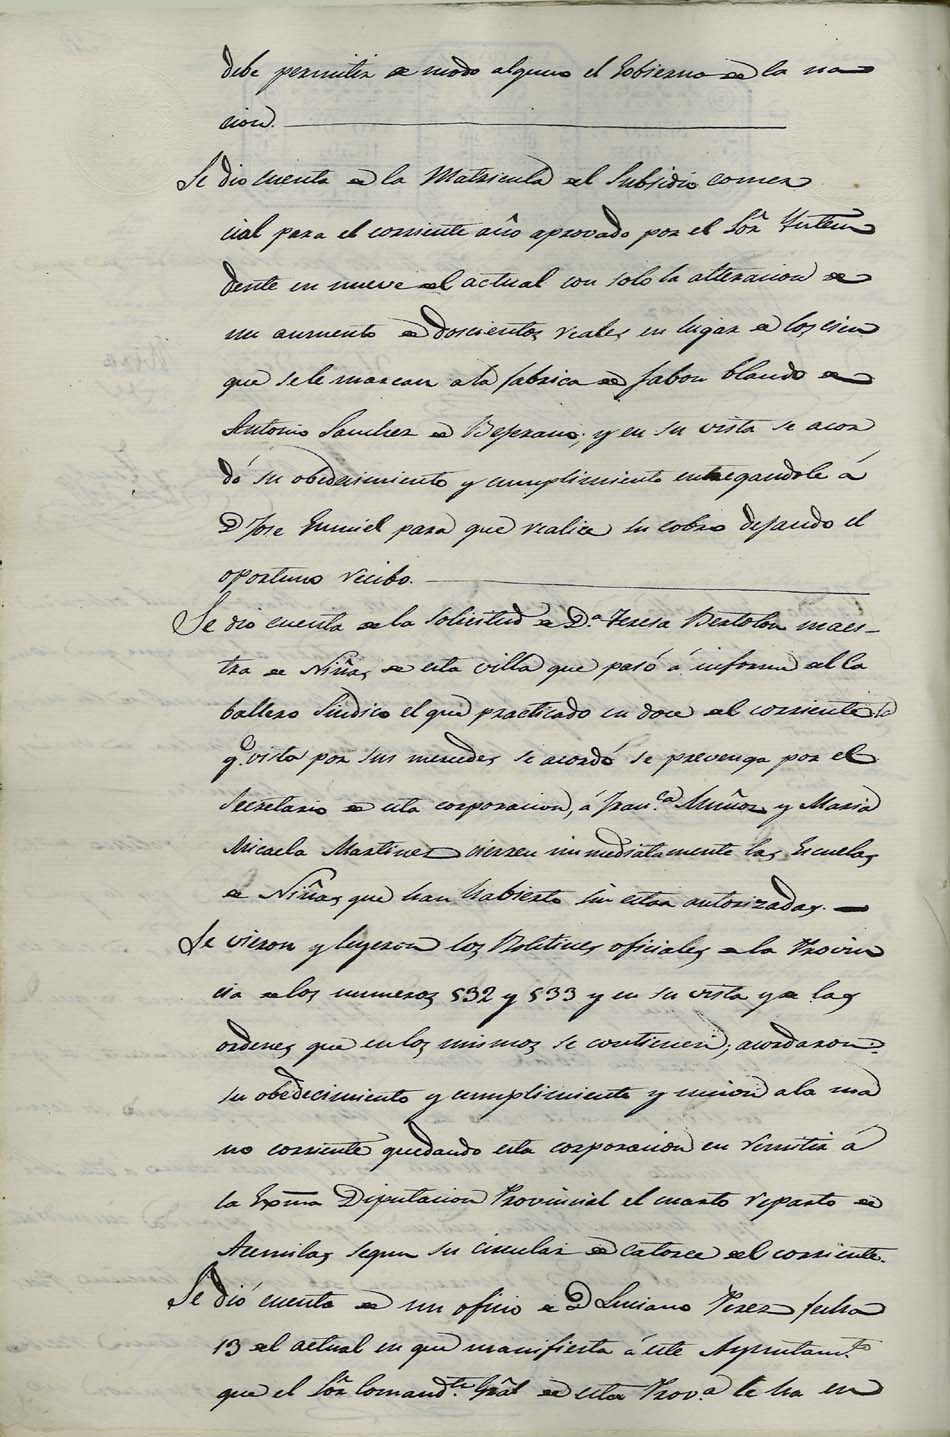 debe permitir de modo alguno el Gobierno de la na
cion.
Se dio cuenta de la Matricula del Subsidio comer
cial para el corriente año aprovado por el Sõr Inten
dente en nueve del actual con solo la alteracion de
un aumento de doscientos reales en lugar de los cien
que se le marcan a la fabrica de Jabon blando de
Antonio Sanchez de Bejerano; y en su vista se acor
dó su obedecimiento y cumplimiento entregandole á
D Jose Gumiel para que realice su cobro dejando el
oportuno recibo.
Se dio cuenta de la solicitud de D.ª Teresa Bertolon maes-
tra de Niñas de esta villa que pasó á informe del Ca
ballero Sindico el que practicado en doce del corriente la
q.e vista por sus mercedes se acordó se prevenga por el
Secretario de esta corporacion, á Fran.ca Muñoz y Maria
Micaela Martinez cierren inmediatamente las Escuelas
de Niñas que han habierto sin estar autorizadas.
Se vieron y leyeron los Boletines oficiales de la Provin
cia de los numeros 532 y 533 y en su vista y de las
ordenes que en los mismos se contienen; acordaron:
su obedecimiento y cumplimiento y union a la ma
no corriente quedando esta corporacion en remitir á
la Exma Diputacion Provincial el cuarto reparto de
Acemilas segun su circular de catorce del corriente.
Se dió cuenta de un oficio de D Luciano Perez fecha
13 del actual en que manifiesta á este Ayuntam.to
que el Sõr Comand.te Gral de esta Prov.a le ha en